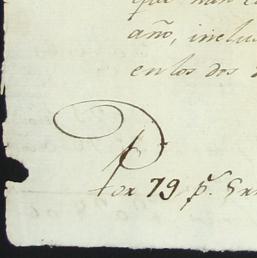 que han
año, inclu
en los dos
Por 79 p.s